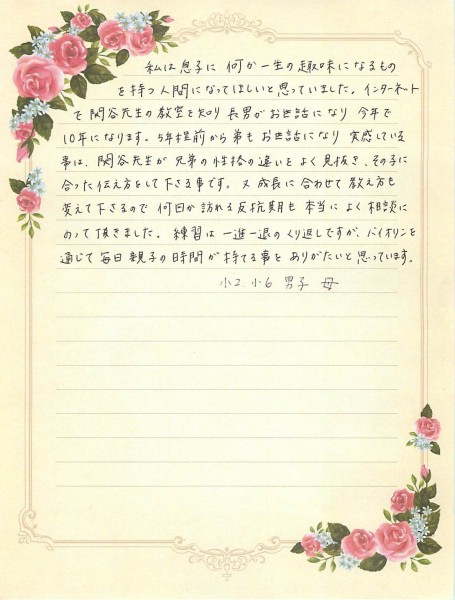 私は息子に 何か一生の趣味になるもの
を持つ人間になってほしいと思っていました。インターネット
で関谷先生の教室を知り 長男がお世話になり 今年で
10年になります。5年程前から弟も お世話になり 実感している
事は、関谷先生が 兄弟の性格の違いを よく見抜き、その子に
合った伝え方をして下さる事です。又 成長に合わせて 教え方も
変えて下さるので 何回か訪れる反抗期も 本当に よく相談に
のって頂きました。 練習は 一進一退の くり返しですが、バイオリンを
通じて 毎日 親子の時間が 持てる事を ありがたいと 思っています。
小2、小6 男子 母